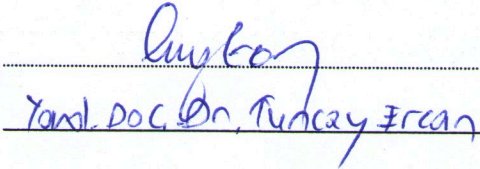 Yard. Doç. Dr. Tuncay Ercan